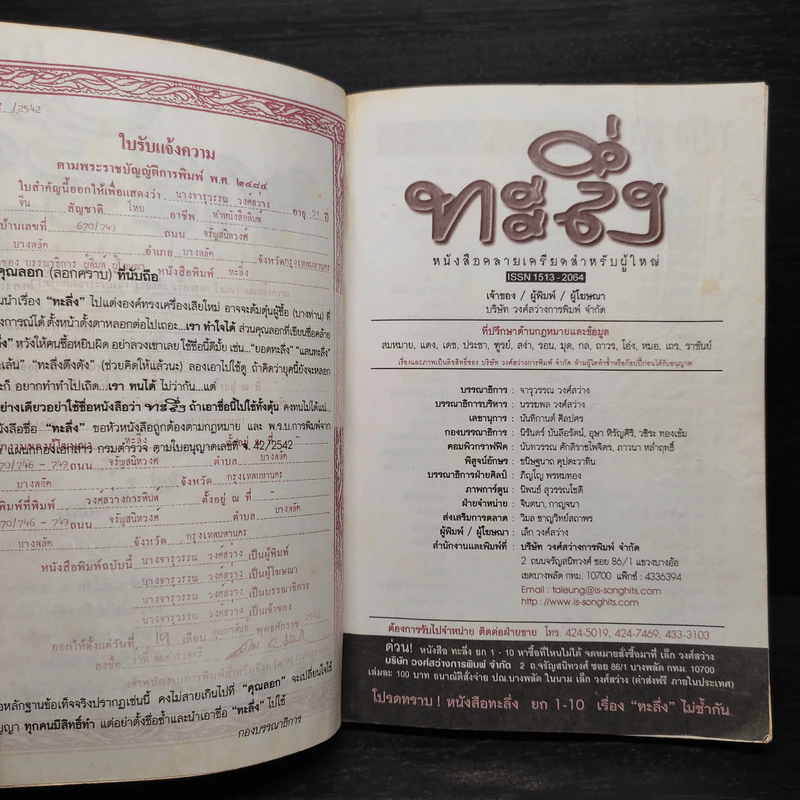 /2542
ใบรับแจ้งความ
ตามพระราชบัญญัติการพิมพ์ พ.ศ. ๒๔๘๔
ใบสำคัญนี้ออกให้เพื่อแสดงว่า นางจารุวรรณ วงศ์สว่าง อายุ 51 ปี
จีน สัญชาติ ไทย อาชีพ ทำหนังสือพิมพ์
บ้านเลขที่ 670/749 ถนน จรัญสนิทวงศ์
บางพลัด อำเภอ บางพลัด จังหวัด กรุงเทพมหานคร
ของ บรรณาธิการ ผู้พิมพ์ ผู้โฆษณา หนังสือพิมพ์ ทะลึ่ง
คุณลอก (ลอกคราบ) ที่นับถือ
นำเรื่อง "ทะลึ่ง" ไปแต่งองค์ทรงเครื่องเสียใหม่ อาจจะต้มตุ๋นผู้ซื้อ (บางท่าน) ที่
งการณ์ได้ ตั้งหน้าตั้งตาหลอกต่อไปเถอะ...เรา ทำได้ ส่วนคุณลอกที่เขียนชื่อคล้าย
" หวังให้คนซื้อหยิบผิด อย่างวงเขาเลย ใช้ชื่อนี้ดีมั้ย เช่น..."ยอดทะลึ่ง" "แสนทะลึ่ง"
เล้น" "ทะลึ่งตึงตัง" (ช่วยคิดให้แล้วนะ) ลองเอาไปใช้ดู ถ้าคิดว่ายุคนี้ยังจะหลอก
ะก็ อยากทำทำไปเถิด...เรา ทนได้ ไม่ว่ากัน...แต่
ย่างเดียวอย่าใช้ชื่อหนังสือว่า ทะลึ่ง ถ้าเอาชื่อนี้ไปใช้ทั้งดุ้น คงทนไม่ได้แน่...
หนังสือชื่อ "ทะลึ่ง" ขอหัวหนังสือถูกต้องตามกฎหมาย และ พ.ร.บ.การพิมพ์จาก
ล แผนกกองเอกสาร กรมตำรวจ ตามใบอนุญาตเลขที่ จ. 42/2542
670/746 - 749 ถนน จรัญสนิทวงศ์ ตำบล บางพลัด
บางพลัด จังหวัด กรุงเทพมหานคร
พิมพ์ที่พิมพ์ วงศ์สว่างการพิมพ์ ตั้งอยู่ ณ ที่
670/746 - 749 ถนน จรัญสนิทวงศ์ ตำบล บางพลัด
บางพลัด จังหวัด กรุงเทพมหานคร
หนังสือพิมพ์ฉบับนี้ นางจารุวรรณ วงศ์สว่าง เป็นผู้พิมพ์
นางจารุวรรณ วงศ์สว่าง เป็นผู้โฆษณา
นางจารุวรรณ วงศ์สว่าง เป็นบรรณาธิการ
นางจารุวรรณ วงศ์สว่าง เป็นเจ้าของ
ออกให้ตั้งแต่วันที่ 19 เดือน กุมภาพันธ์ พุทธศักราช 2542
ลงชื่อ
อหลักฐานข้อเท็จจริงปรากฏเช่นนี้ คงไม่สายเกินไปที่ "คุณลอก" จะเปลี่ยนใจใช้
ญญา ทุกคนมีสิทธิ์ทำ แต่อย่าตั้งชื่อซ้ำและนำเอาชื่อ "ทะลึ่ง" ไปใช้
กองบรรณาธิการ
ทะลึ่ง
หนังสือคลายเครียดสำหรับผู้ใหญ่
ISSN 1513-2064
เจ้าของ / ผู้พิมพ์ / ผู้โฆษณา
บริษัท วงศ์สว่างการพิมพ์ จำกัด
ที่ปรึกษาด้านกฎหมายและข้อมูล
สมหมาย, แดง, เดช, ประชา, ฑูรย์, สง่า, รอน, มุด, กล, ถาวร, โอ่ง, หมอ, เถร, ราชันย์
เรื่องและภาพเป็นลิขสิทธิ์ของ บริษัท วงศ์สว่างการพิมพ์ จำกัด ห้ามผู้ใดทำซ้ำหรือก๊อปปี้ก่อนได้รับอนุญาต
บรรณาธิการ : จารุวรรณ วงศ์สว่าง
บรรณาธิการบริหาร : นรรยพล วงศ์สว่าง
เลขานุการ : นันทิกานต์ ศิลปศร
กองบรรณาธิการ : นิรันดร์ บันลือรัตน์, อุษา หิรัญศิริ, วชิระ ทองเข้ม
คอมพิวกราฟฟิค : นันทวรรณ ศักดิราชไพจิตร, ภาวนา หลำฤทธิ์
พิสูจน์อักษร : ขนิษฐนาถ คุปตะวาทิน
บรรณาธิการฝ่ายศิลป์ : ภิญโญ พรหมทอง
ภาพการ์ตูน : นิพนธ์ สุวรรณโชติ
ฝ่ายจำหน่าย : จินตนา, กาญจนา
ส่งเสริมการตลาด : วิมล ชาญวิทย์สถาพร
ผู้พิมพ์ / ผู้โฆษณา : เล็ก วงศ์สว่าง
สำนักงานและพิมพ์ที่ : บริษัท วงศ์สว่างการพิมพ์ จำกัด
2 ถนนจรัญสนิทวงศ์ ซอย 86/1 แขวงบางอ้อ
เขตบางพลัด กทม. 10700 แฟ็กซ์ : 4336394
Email : taleung@is-songhits.com
http : //www.is-songhits.com
ต้องการรับไปจำหน่าย ติดต่อฝ่ายขาย โทร. 424-5019, 424-7469, 433-3103
ด่วน! หนังสือ ทะลึ่ง ยก 1 - 10 หาซื้อที่ไหนไม่ได้ จดหมายสั่งซื้อมาที่ เล็ก วงศ์สว่าง
บริษัท วงศ์สว่างการพิมพ์ จำกัด 2 ถ.จรัญสนิทวงศ์ ซอย 86/1 บางพลัด กทม. 10700
เล่มละ 100 บาท ธนาณัติสั่งจ่าย ปณ.บางพลัด ในนาม เล็ก วงศ์สว่าง (ค่าส่งฟรี ภายในประเทศ)
โปรดทราบ ! หนังสือทะลึ่ง ยก 1-10 เรื่อง "ทะลึ่ง" ไม่ซ้ำกัน